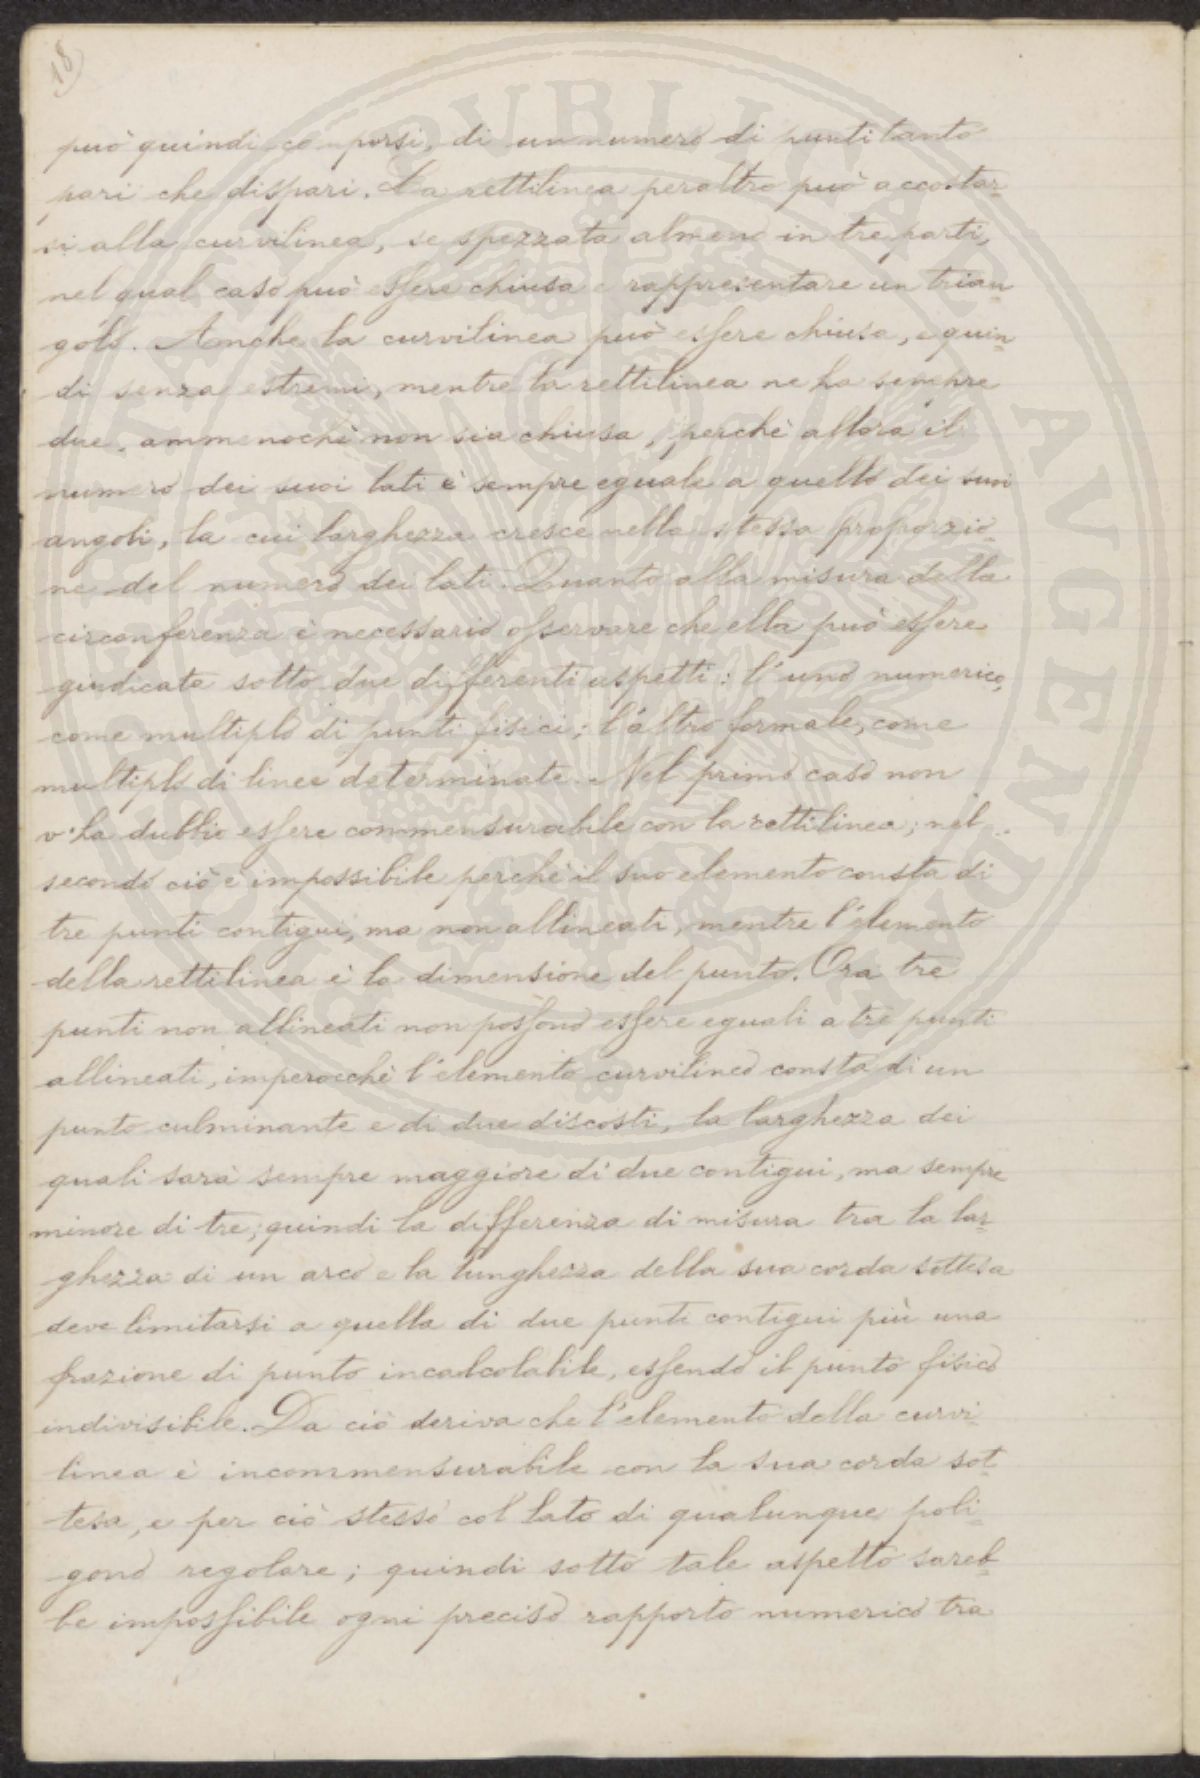 18)
può quindi comporsi, di un numero di punti tanto
pari che dispari. La rettilinea peraltro può accostar-
si alla curvilinea, se spezzata almeno in tre parti,
nel qual caso può essere chiusa e rappresentare un trian
golo. Anche la curvilinea può essere chiusa, e quin-
di senza estremi, mentre la rettilinea ne ha sempre
due, ammenochè non sia chiusa, perchè allora il
numero dei suoi lati è sempre eguale a quello dei suoi
angoli, la cui larghezza cresce nella stessa proporzio-
ne del numero dei lati. Quanto alla misura della
circonferenza è necessario osservare che ella può essere
giudicata sotto due differenti aspetti: l'uno numerico,
come multiplo di punti fisici; l'altro formale, come
multiplo di linee determinate. Nel primo caso non
v'ha dubbio essere commensurabile con la rettilinea; nel
secondo ciò è impossibile perchè il suo elemento consta di
tre punti contigui, ma non allineati, mentre l'elemento
della rettilinea è la dimensione del punto. Ora tre
punti non allineati non possono essere eguali a tre punti
allineati, imperocchè l'elemento curvilineo consta di un
punto culminante e di due discosti, la larghezza dei
quali sarà sempre maggiore di due contigui, ma sempre
minore di tre; quindi la differenza di misura tra la lar-
ghezza di un arco e la lunghezza della sua corda sottesa
deve limitarsi a quella di due punti contigui più una
frazione di punto incalcolabile, essendo il punto fisico
indivisibile. Da ciò deriva che l'elemento della curvi-
linea è incommensurabile con la sua corda sot-
tesa, e per ciò stesso col lato di qualunque poli-
gono regolare; quindi sotto tale aspetto sareb-
be impossibile ogni preciso rapporto numerico tra